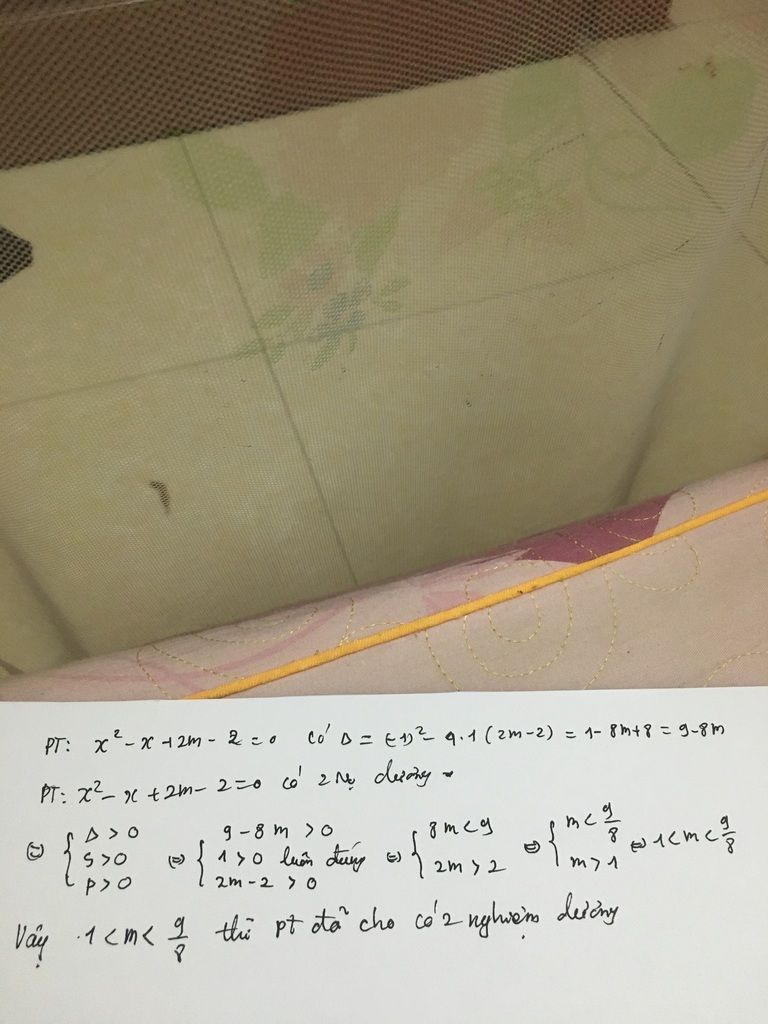 PT: x² - x + 2m - 2 = 0 có Δ = (-1)² - 4.1(2m-2) = 1 - 8m + 8 = 9 - 8m
PT: x² - x + 2m - 2 = 0 có 2 No dương
⇔ { Δ > 0 ; S > 0 ; P > 0 ⇔ { 9 - 8m > 0 ; 1 > 0 luôn đúng ; 2m - 2 > 0 ⇔ { 8m < 9 ; 2m > 2 ⇔ { m < 9/8 ; m > 1 ⇔ 1 < m < 9/8
Vậy 1 < m < 9/8 thì pt đã cho có 2 nghiệm dương